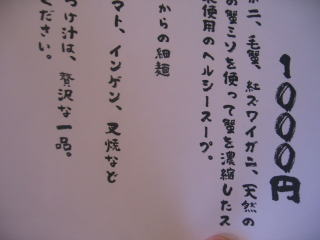 1000円
ニ、毛蟹、紅ズワイガニ、天然の
の蟹ミソを使って蟹を濃縮したス
使用のヘルシースープ。
からの細麺
マト、インゲン、叉焼など
つけ汁は、贅沢な一品。
ください。